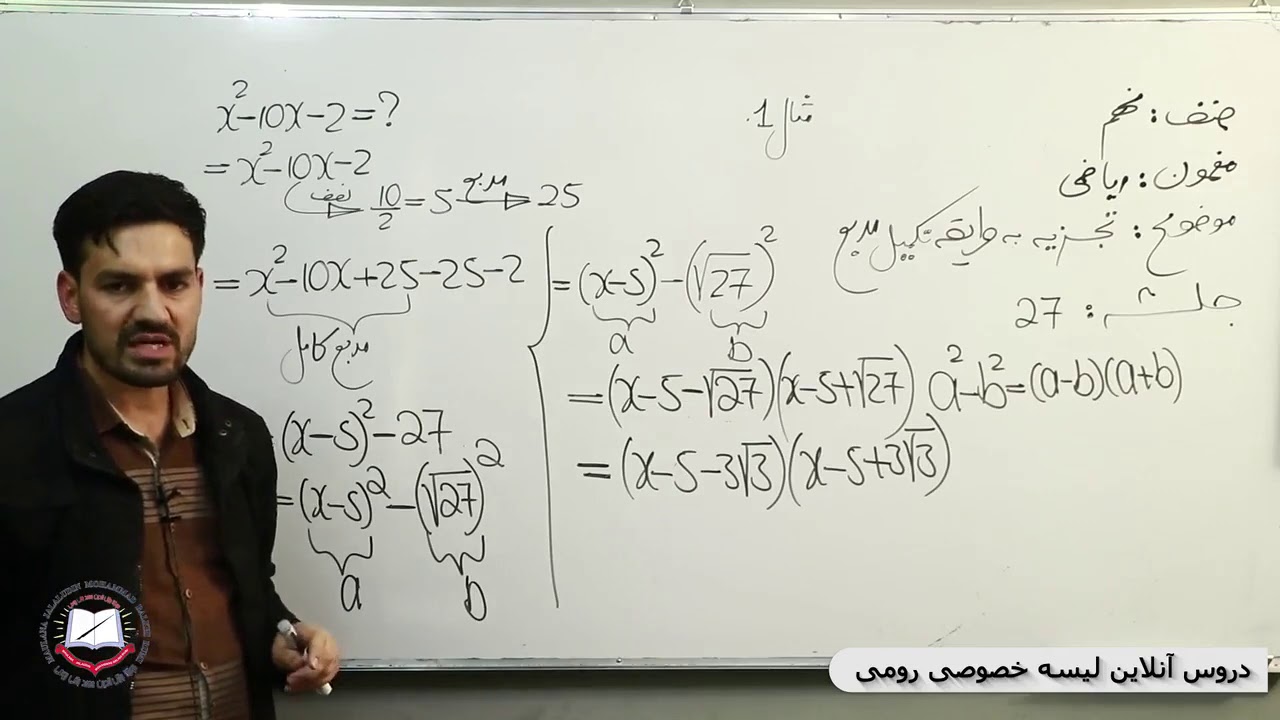 صنف: نهم
مضمون: ریاضی
موضوع: تجزیه به طریقه تکمیل مربع
جلسه: 27
مثال 1.
x²-10x-2=?
=x²-10x-2
نصف 10/2=5 مربع 25
=x²-10x+25-25-2
مربع کامل
(x-5)²-27
=(x-5)²-(√27)²
a b
=(x-5)²-(√27)²
a b
=(x-5-√27)(x-5+√27) a²-b²=(a-b)(a+b)
=(x-5-3√3)(x-5+3√3)
MAWLANA JALALUDIN MOHAMMAD BALKHI
دروس آنلاین لیسه خصوصی رومی